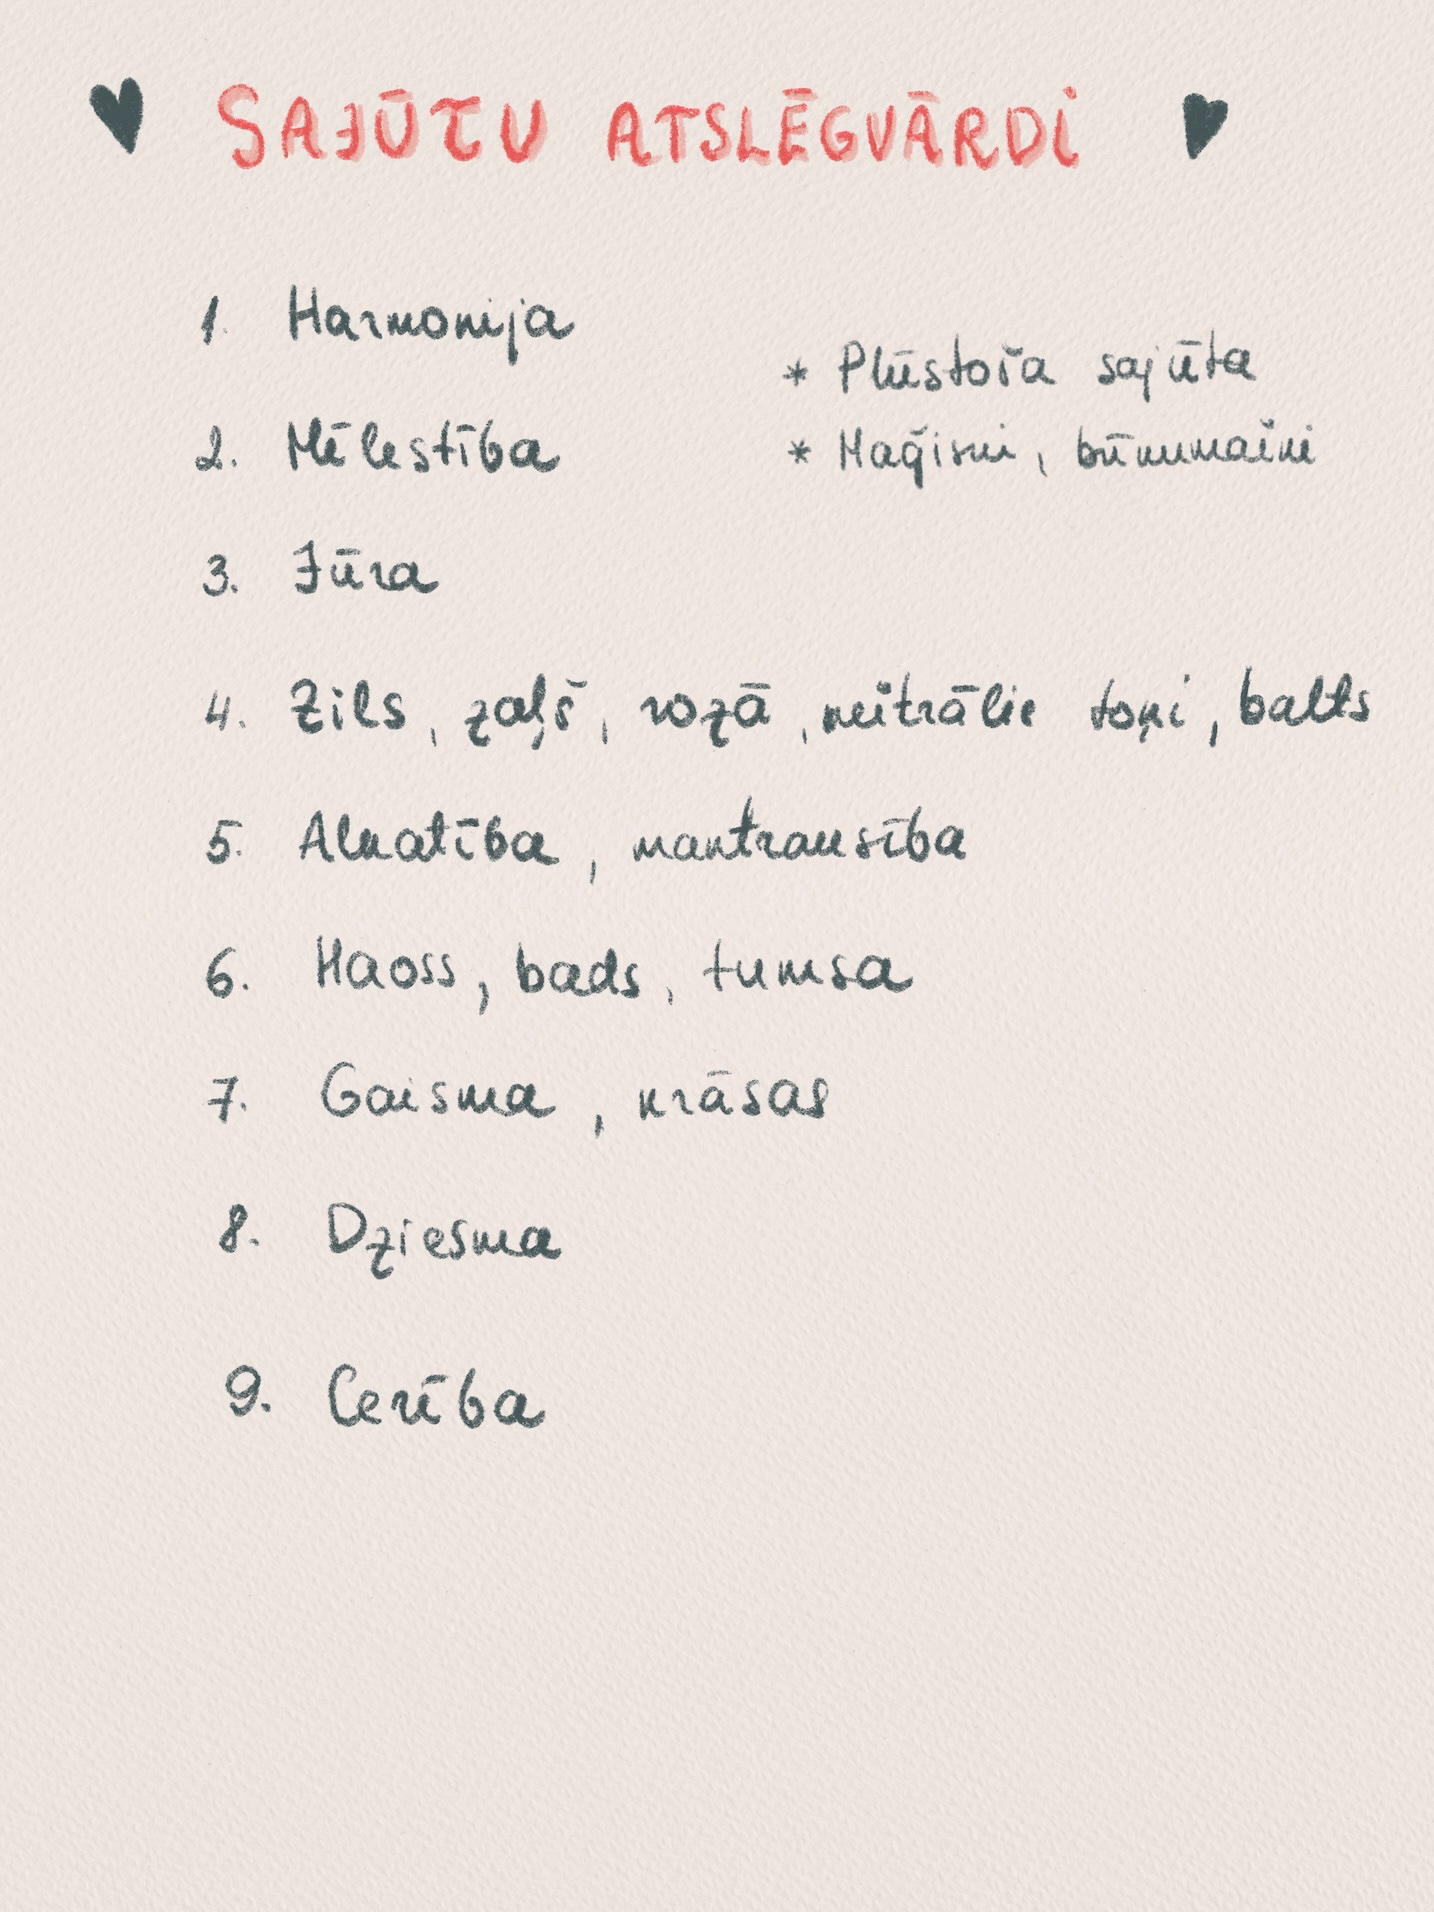 SAJŪTU ATSLĒGVĀRDI
1. Harmonija
* Plūstoša sajūta
2. Mīlestība
* Maģiski, burvmaiņi
3. Jūra
4. Zils, zaļš, rozā, neitrālie toņi, balts
5. Alkatība, mantrausība
6. Haoss, bads, tumsa
7. Gaisma, krāsas
8. Dziesma
9. Cerība